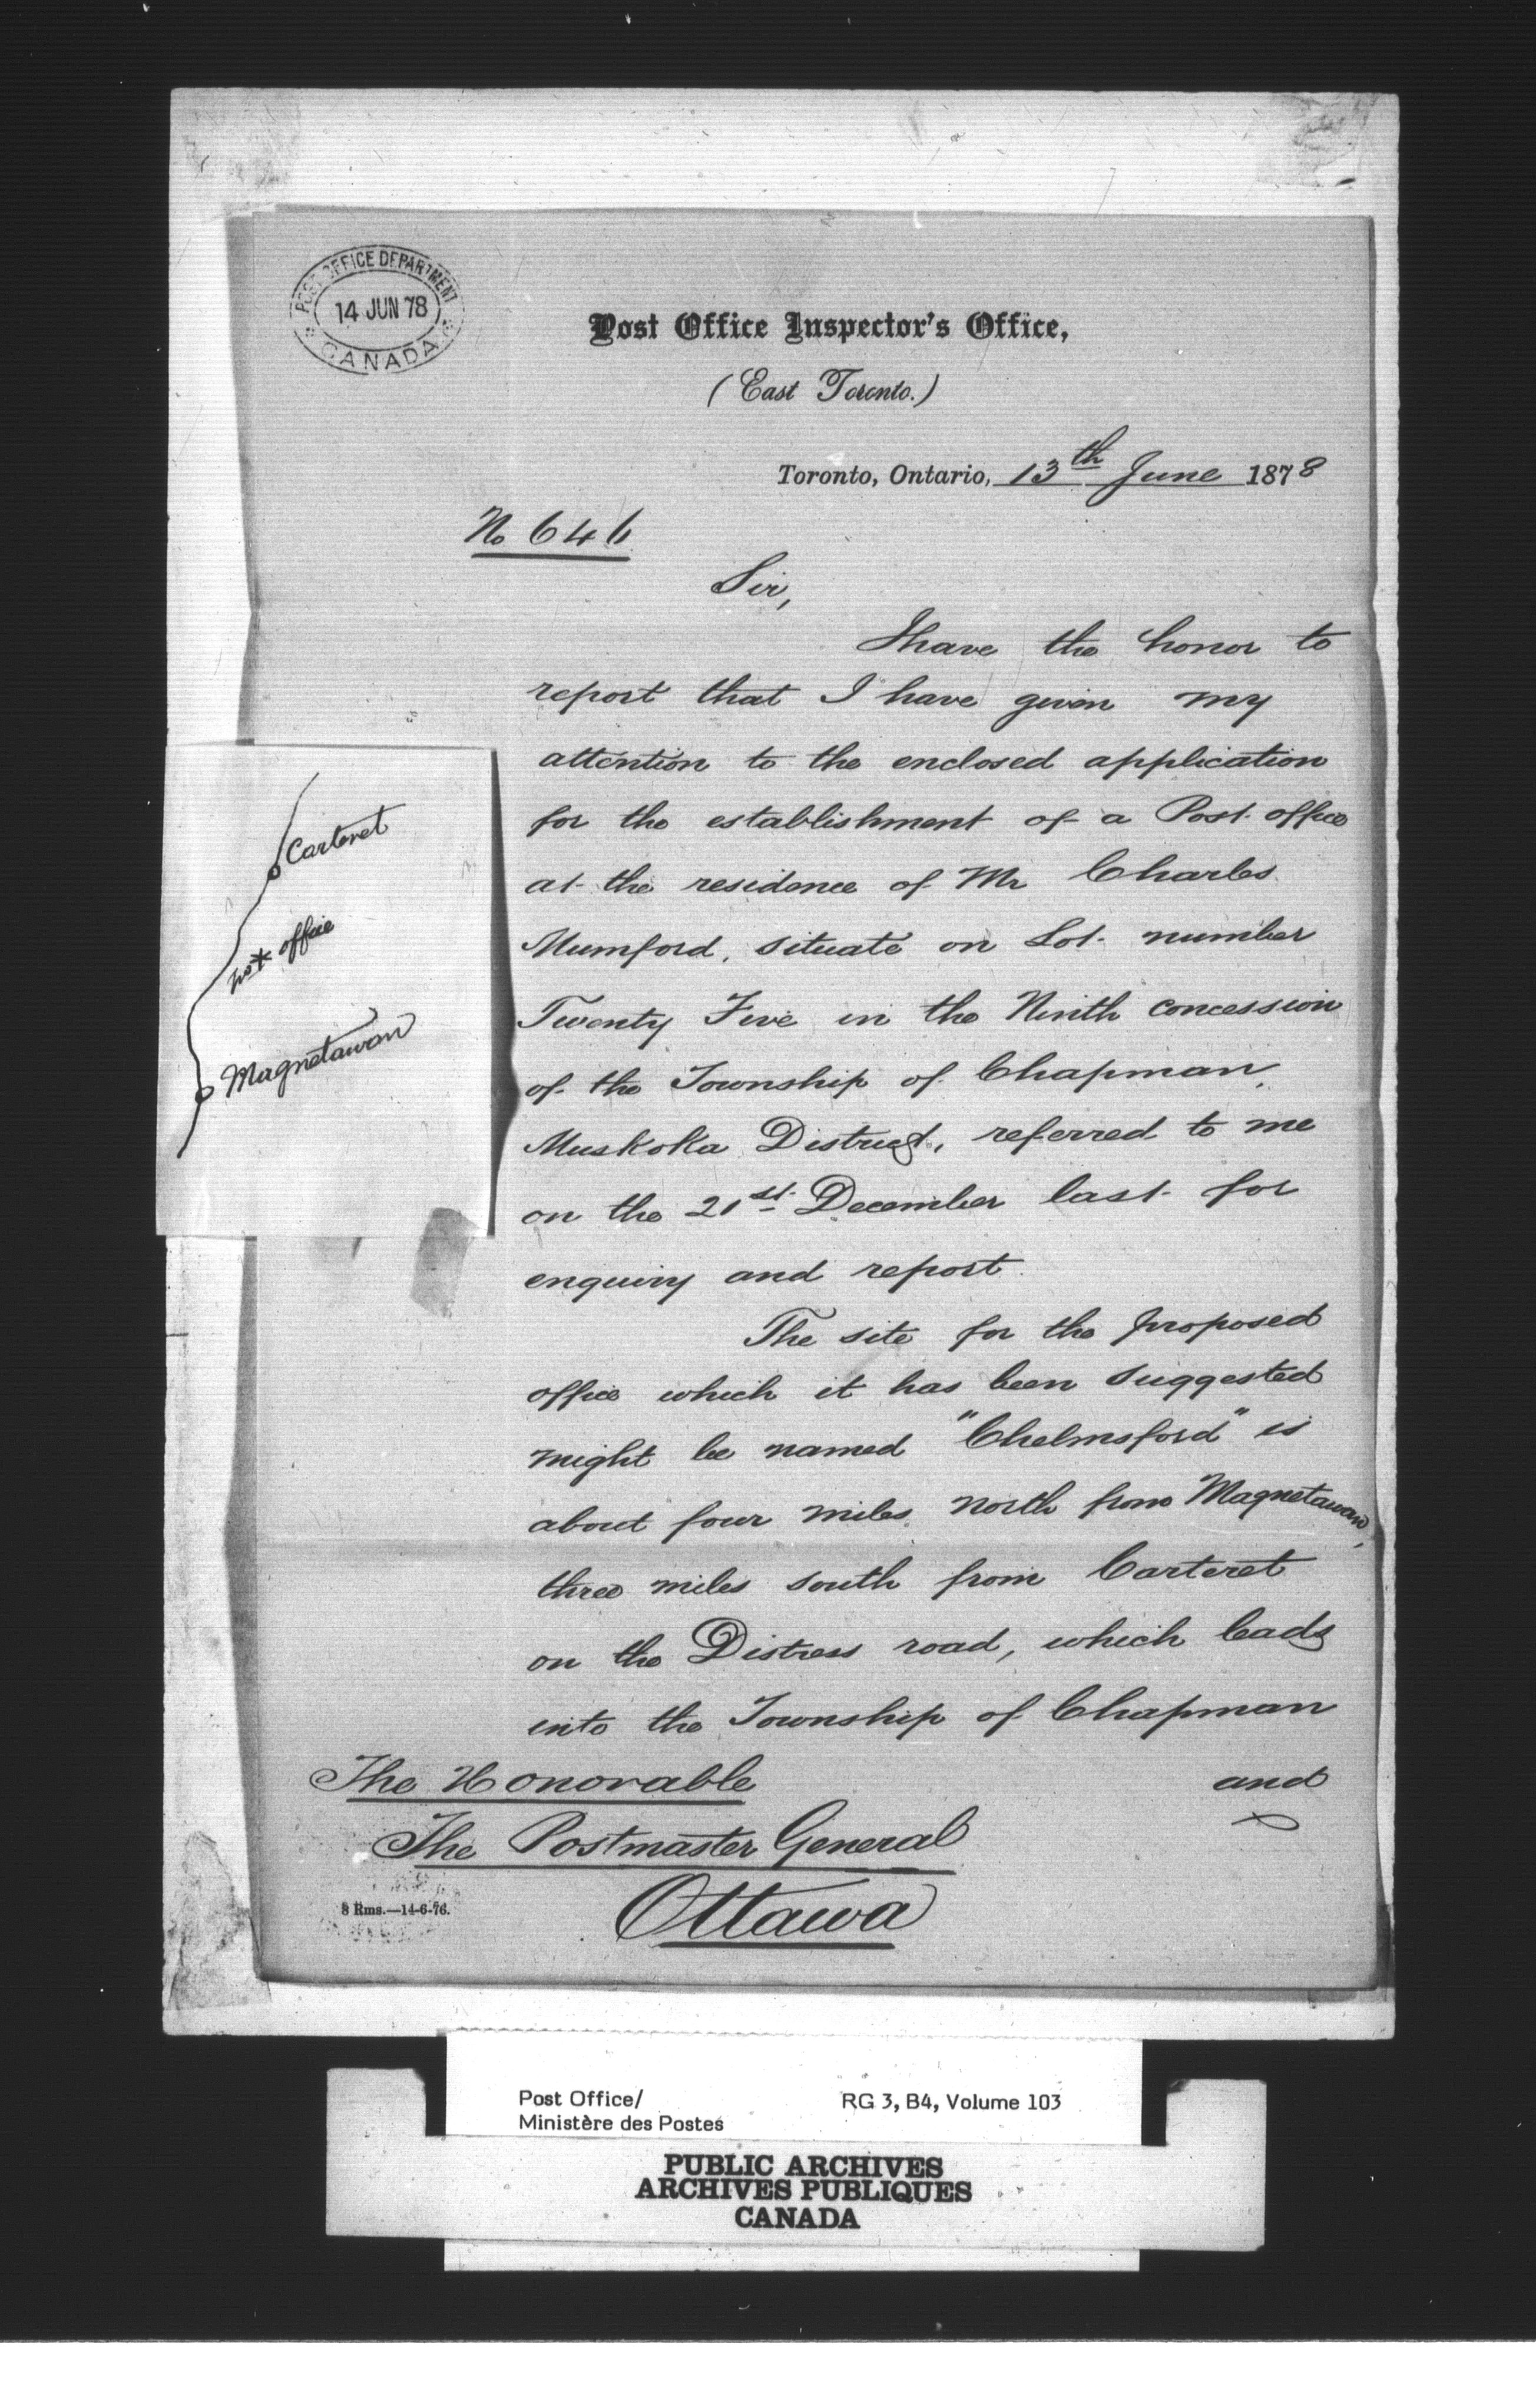 POST OFFICE DEPARTMENT
14 JUN 78
CANADA
Post Office Inspector's Office,
(East Toronto.)
Toronto, Ontario, 13th June 1878
No 646
Sir,
I have the honor to
report that I have given my
attention to the enclosed application
for the establishment of a Post office
at the residence of Mr Charles
Mumford, situate on Lot number
Twenty Five in the Ninth concession
of the Township of Chapman,
Muskoka District, referred to me
on the 21st December last for
enquiry and report.
The site for the proposed
office which it has been suggested
might be named "Chelmsford" is
about four miles north from Magnetawan,
three miles south from Carteret
on the Distress road, which leads
into the Township of Chapman
and
The Honorable
The Postmaster General
Ottawa
8 Rms.—14-6-76.
Carteret
office
Magnetawan
Post Office/
Ministère des Postes
RG 3, B4, Volume 103
PUBLIC ARCHIVES
ARCHIVES PUBLIQUES
CANADA